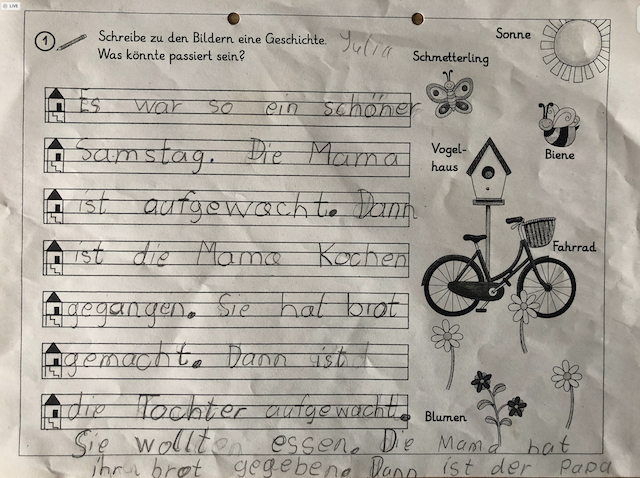 LIVE
1 Schreibe zu den Bildern eine Geschichte.
Was könnte passiert sein?
Julia
Sonne
Schmetterling
Biene
Vogel-
haus
Fahrrad
Blumen
Es war so ein schöner
Samstag. Die Mama
ist aufgewacht. Dann
ist die Mama Kochen
gegangen. Sie hat brot
gemacht. Dann ist
die Tochter aufgewacht.
Sie wollten essen. Die Mama hat
ihr brot gegeben. Dann ist der Papa